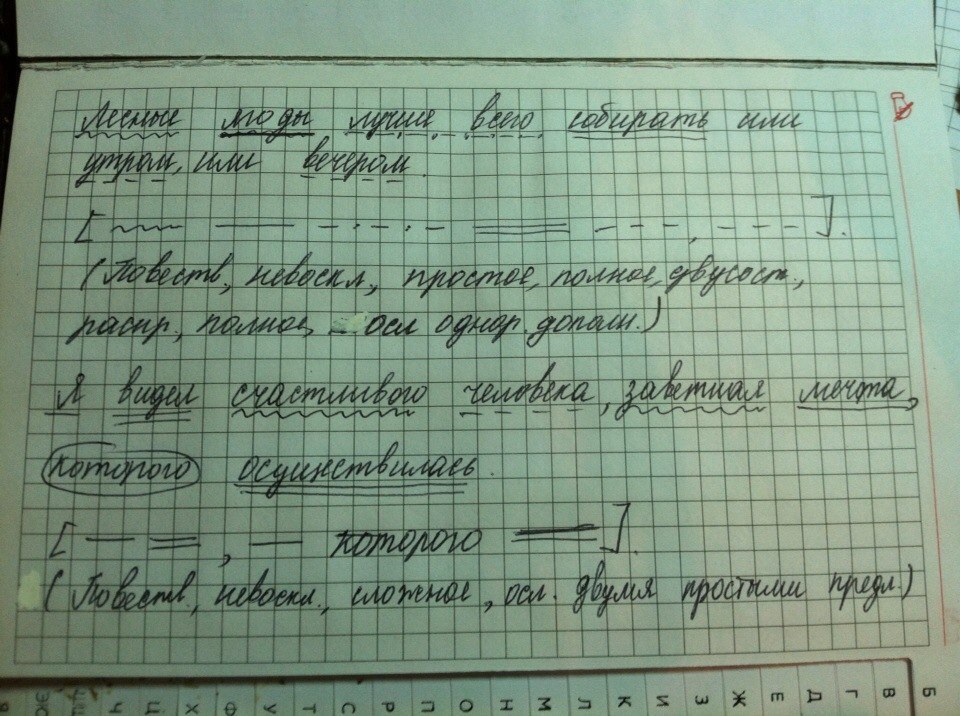 Лесные ягоды лучше всего собирать или
утром, или вечером.
[ ].
(Повеств, невоскл, простое, полное, двусост.,
распр., полное, осл однор. дополн.)
Я видел счастливого человека, заветная мечта,
которого осуществилась.
[ , которого ].
(Повеств, невоскл., сложное, осл. двумя простыми предл.)
Б В Г Д Е Ж З И К Л М Н О П Р С Т У Ф Х Ц Ч